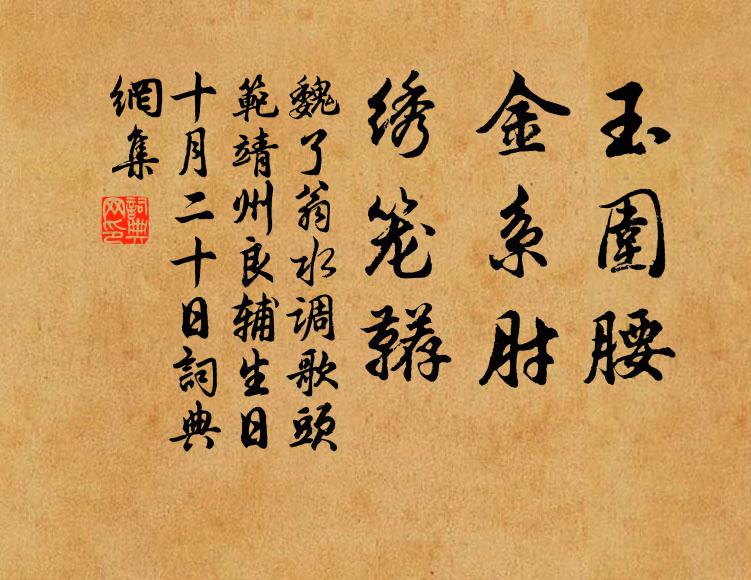 玉圍腰
金系肘
绣笼鞯
魏了翁水调歌頭
範靖州良辅生日
十月二十日詞典
網集
詞典
网印